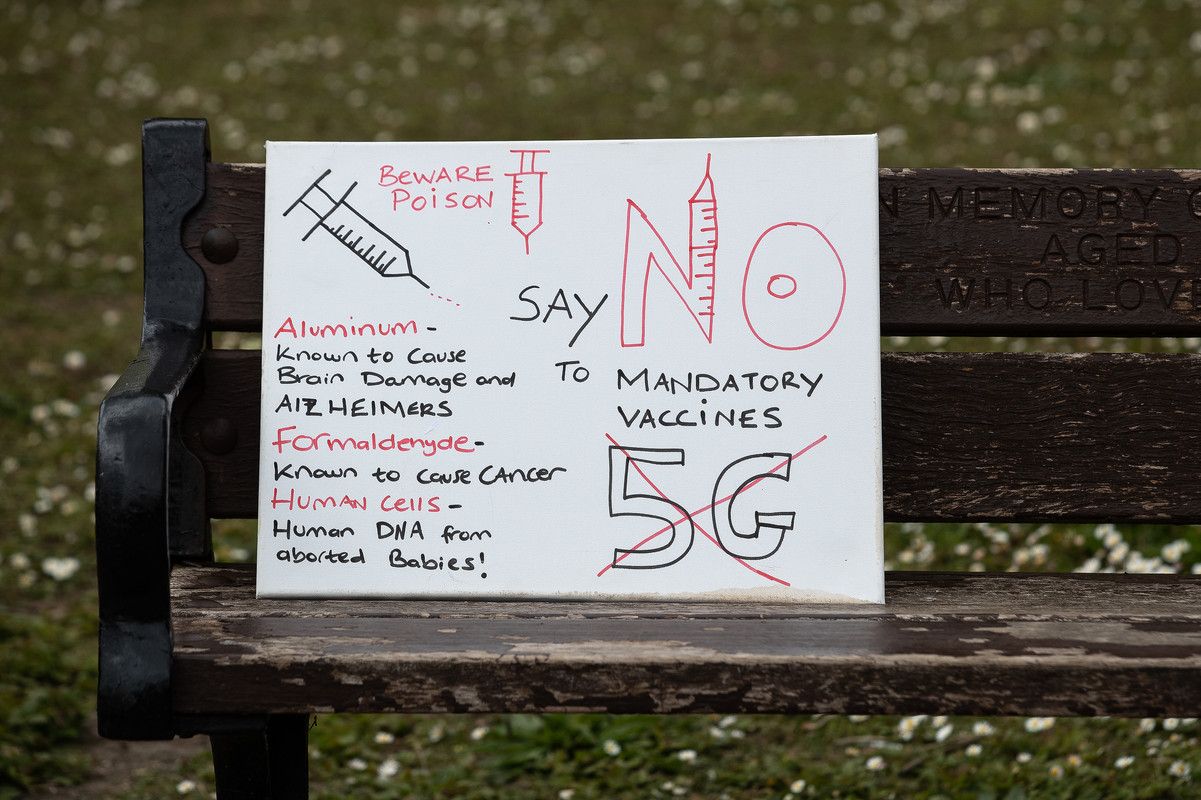 BEWARE
POISON
SAY NO
TO MANDATORY
VACCINES
5G
Aluminum -
Known to Cause
Brain Damage and
AlZHEIMERS
Formaldenyde-
Known to cause CAncer
HUMAN Cells -
Human DNA from
aborted Babies!
N MEMORY
AGED
WHO LOVE